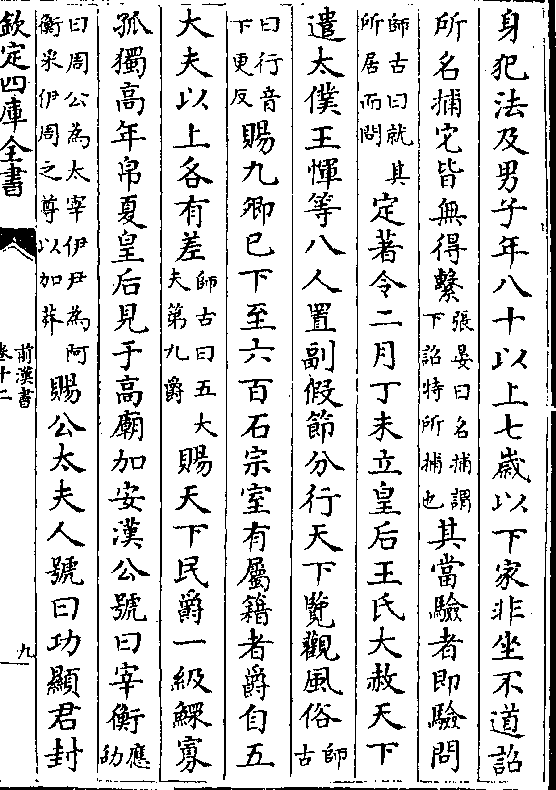 身犯法及男子年八十以上七歲以下家非坐不道詔
所名捕它皆無得繫張晏曰名捕謂下詔特所捕也其當驗者即驗問
師古曰就其所居而問定著令二月丁未立皇后王氏大赦天下
遣太僕王惲等八人置副假節分行天下覽觀風俗師古
曰行音下更反賜九卿已下至六百石宗室有屬籍者爵自五
大夫以上各有差師古曰五大夫第九爵賜天下民爵一級鰥寡
孤獨高年帛夏皇后見于高廟加安漢公號曰宰衡應劭
曰周公為太宰伊尹為阿衡采伊周之尊以加莽賜公太夫人號曰功顯君封
欽定四庫全書
前漢書
卷十二
九